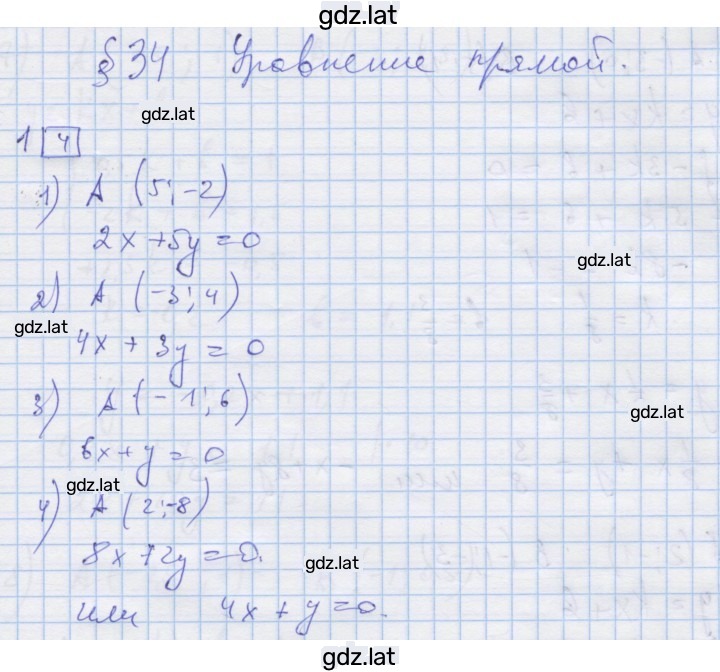 gdz.lat
§ 34 Уравнение прямой.
gdz.lat
1 4
1) A (5; -2)
2x + 5y = 0
gdz.lat
2) A (-3; 4)
gdz.lat
4x + 3y = 0
3) A (-1; 6)
gdz.lat
6x + y = 0
gdz.lat
4) A (2; -8)
8x + 2y = 0.
gdz.lat
или 4x + y = 0.
gdz.lat